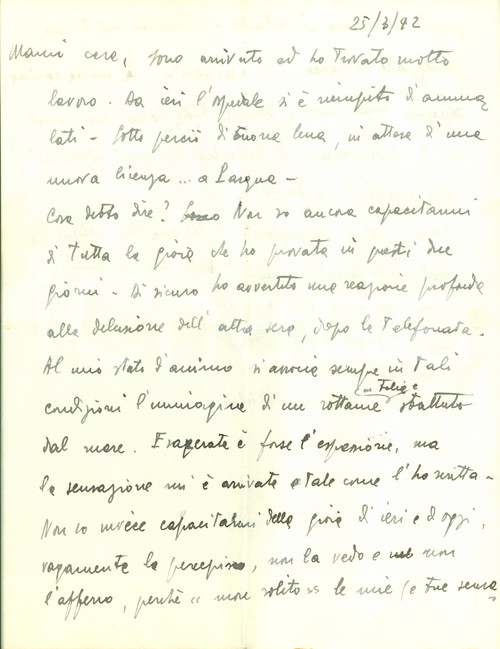 25/3/42
cara, sono arrivato ed ho trovato molto
lavoro. Da ieri l'ospedale si è riempito di amma
lati - Sotto perciò di buona lena, in attesa d'una
nuova licenza ... a Pasqua -
Cosa debbo dire? Non so ancora capacitarmi
di tutta la gioia che ho provata in questi due
giorni - Di sicuro ho avvertito una reazione profonda
alla delusione dell'altra sera, dopo la telefonata.
Al mio stato d'animo si associa sempre in tali
condizioni l'immagine di un rottame sbattuto
dal mare. Esagerata è forse l'espressione, ma
la sensazione mi è arrivata tale come l'ho scritta -
Non so invece capacitarmi della gioia di ieri e d'oggi,
vagamente la percepisco, non la vedo e non
l'afferro, perchè " more solito " le mie (e tue sensa